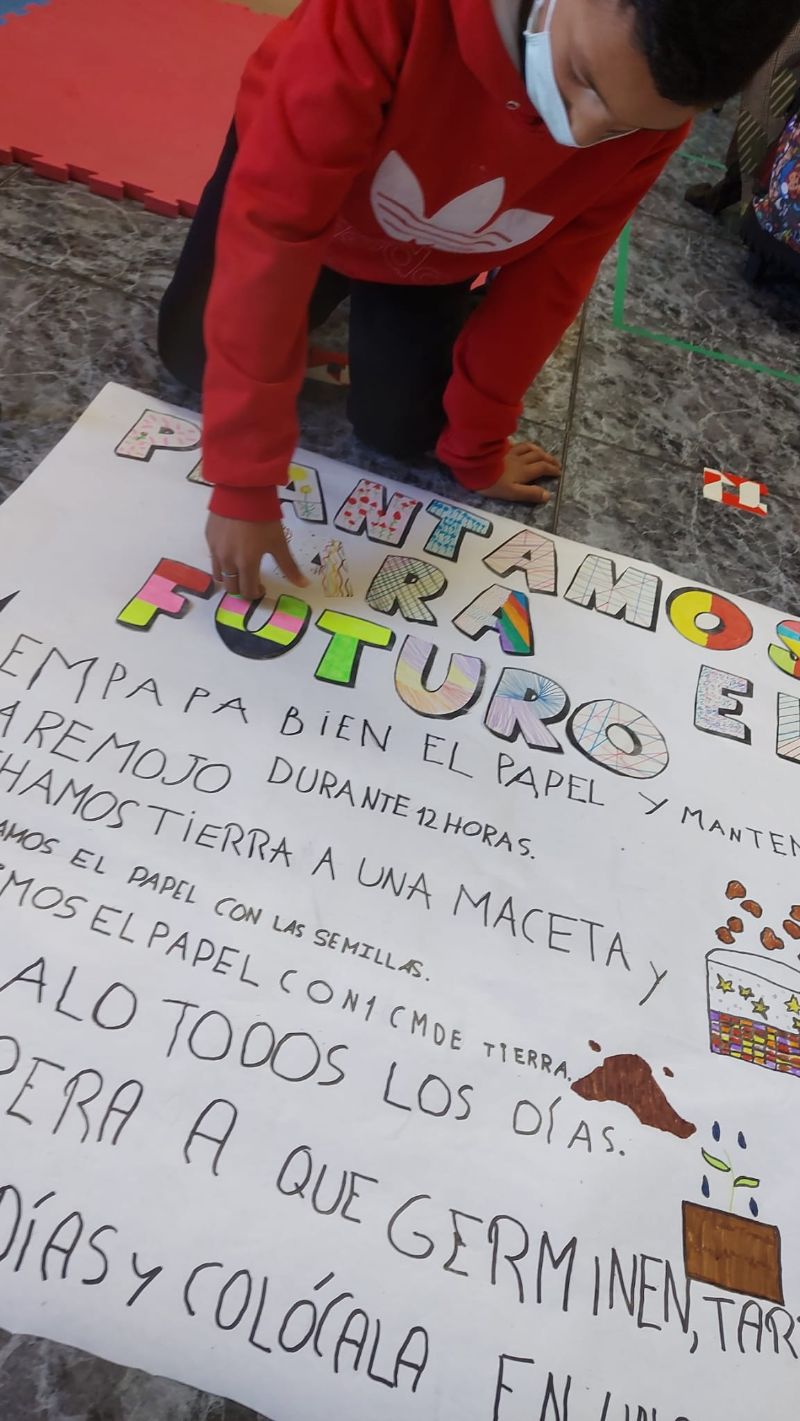 PLANTAMOS
PARA EL
FUTURO
EMPAPA BIEN EL PAPEL Y MANTEN
A REMOJO DURANTE 12 HORAS.
HAMOS TIERRA A UNA MACETA Y
AMOS EL PAPEL CON LAS SEMILLAS.
MOS EL PAPEL CON 1 CM DE TIERRA.
ALO TODOS LOS DÍAS.
PERA A QUE GERMINEN, TAR
DÍAS Y COLÓCALA EN UN